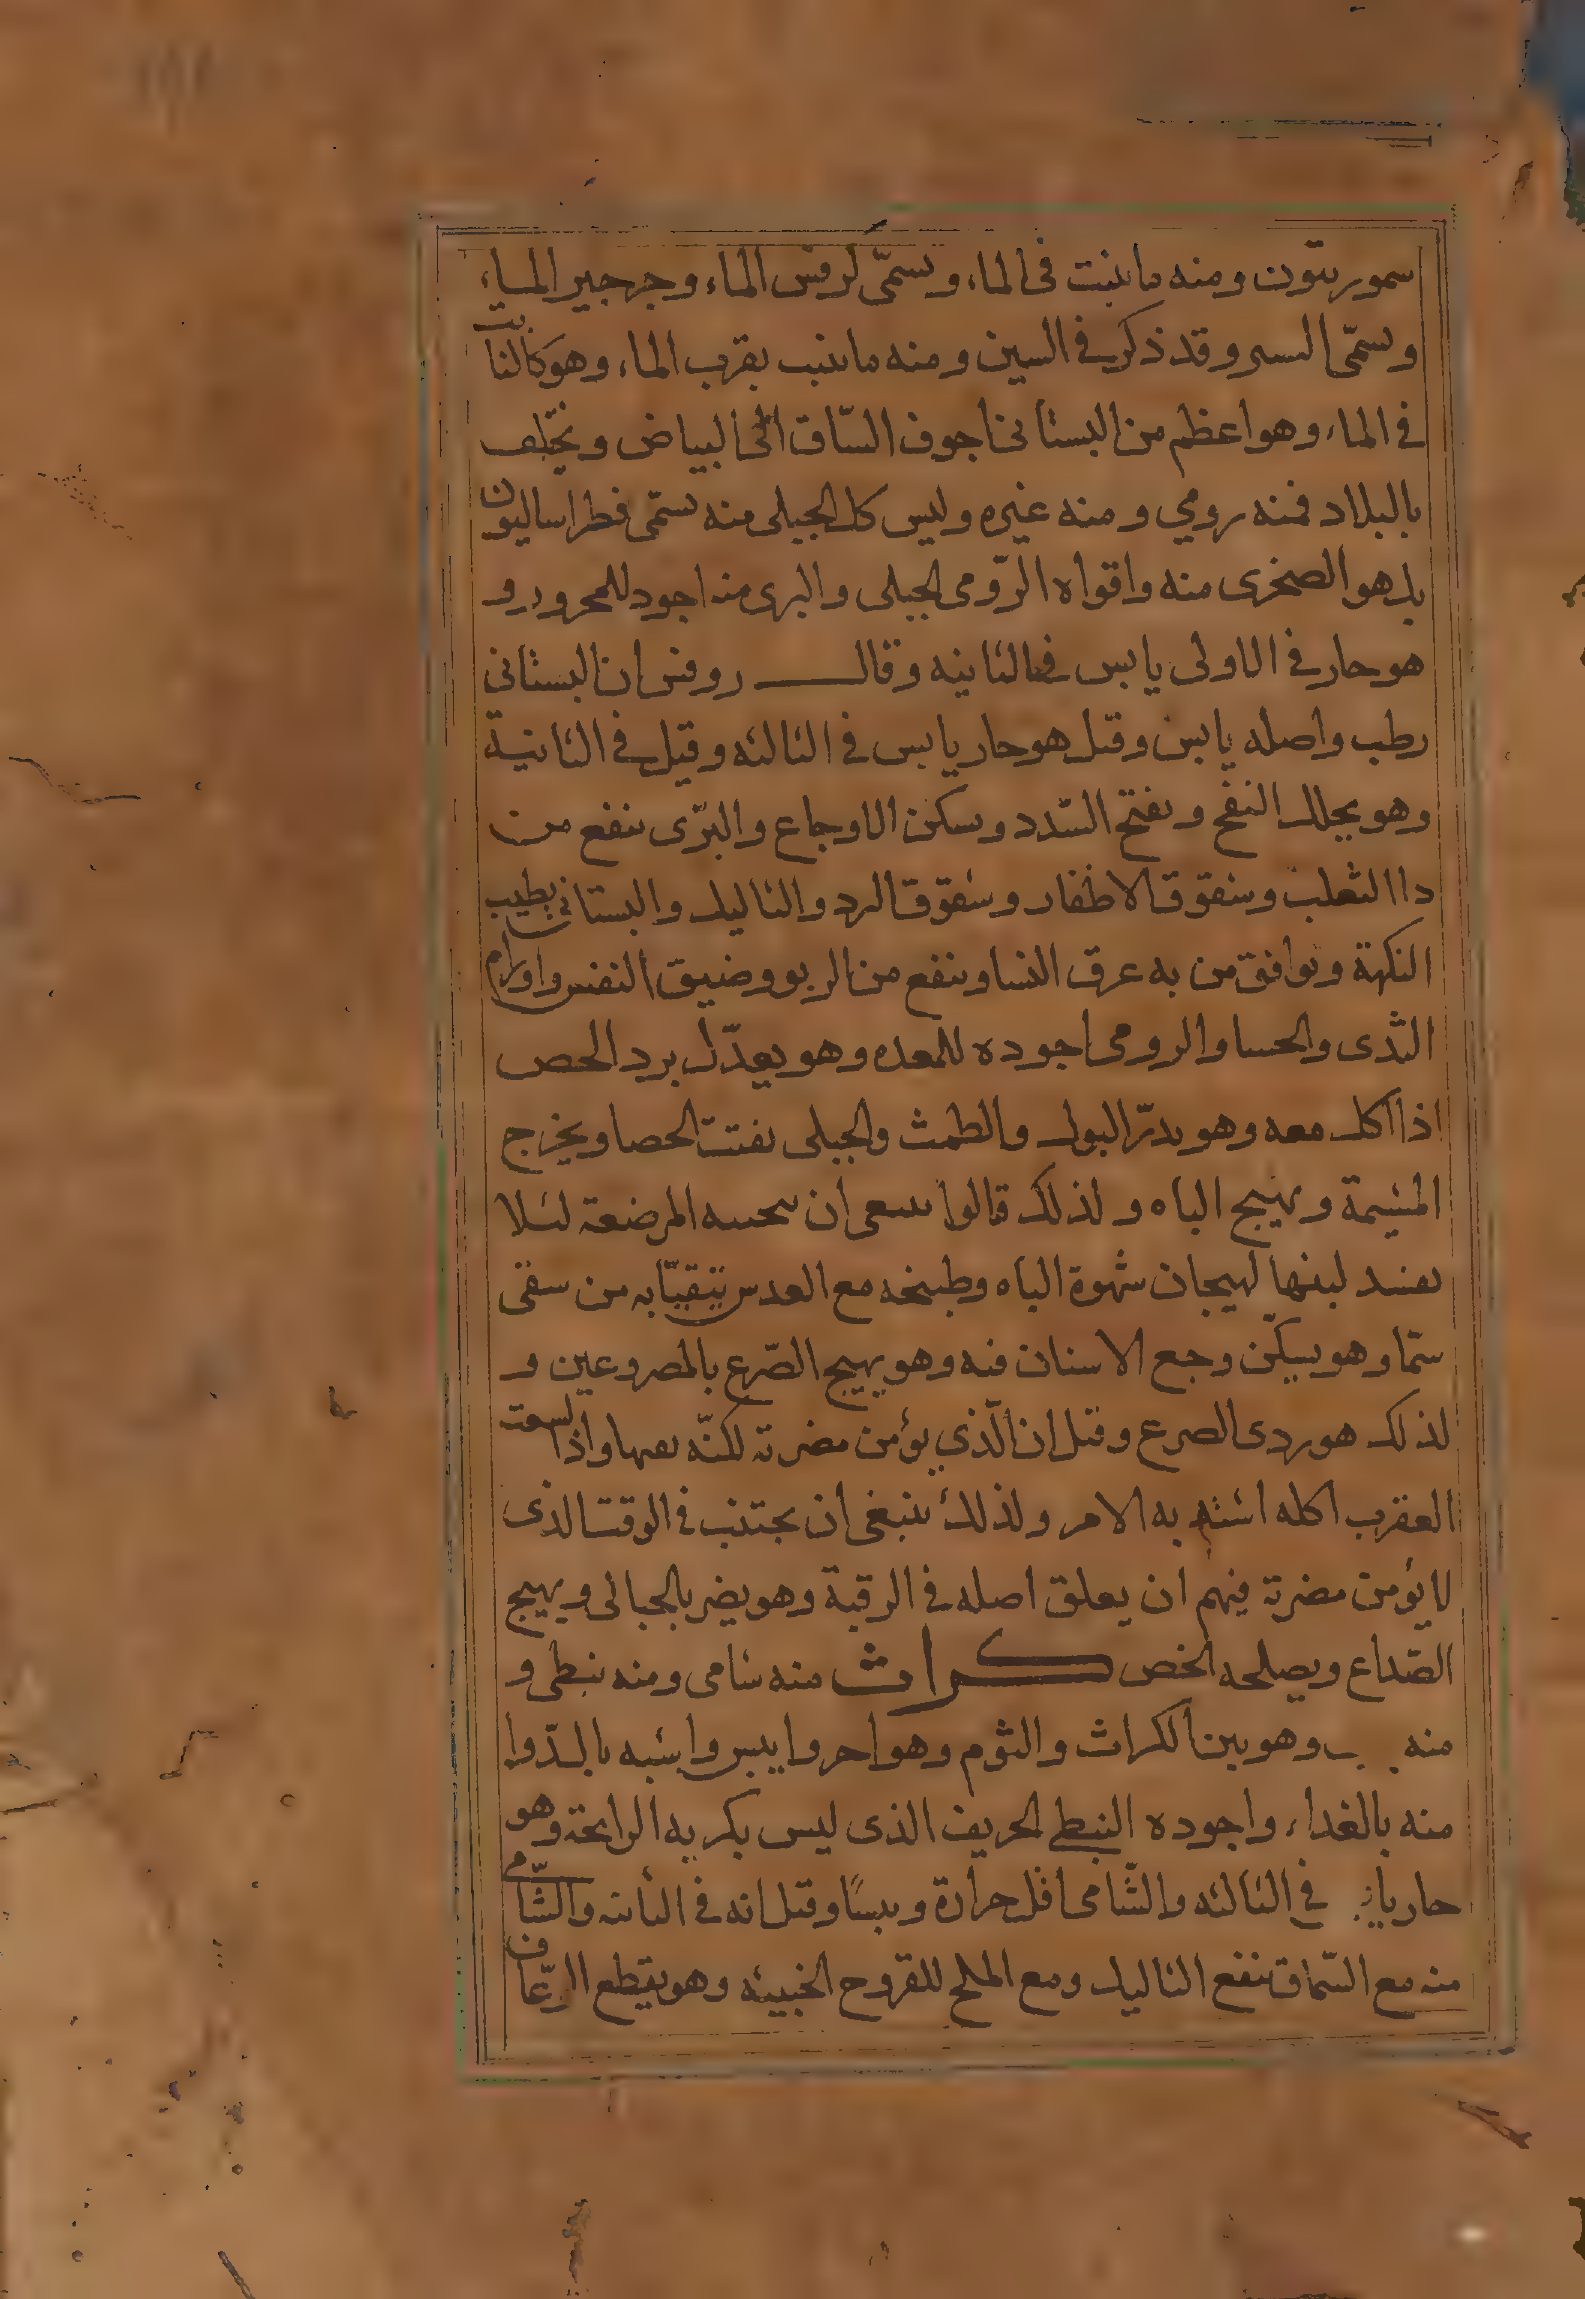 سموريتون ومنه ما ينبت فى الماء ويسمّى كرفس الماء وجرجير الماء
ويسمّى السير وقد ذكر فى السين ومنه ما ينبت بقرب الماء وهو كالنابت
فى الماء وهو اعظم من البستانى اجوف السّاق الى البياض ويختلف
بالبلاد فمنه رومي ومنه غيره وليس كل الجبلى منه يسمّى فطراساليون
بل هو الصخرى منه واقواه الرّومى الجبلى والبرى منه اجود للمحرور و
هو حار فى الاولى يابس فى الثانيه وقال روفس ان البستانى
رطب واصله يابس وقيل هو حار يابس فى الثالثه وقيل فى الثانية
وهو يحلل النفخ ويفتح السّدد ويسكن الاوجاع والبرّى ينفع من
دا الثعلب وشقوق الاظفار وشقوق البرد والثاليل والبستانى يطيب
النكهة ويوافق من به عرق النسا وينفع من الربو وضيق النفس واورام
الثدى والحسا والرومى اجوده للمعده وهو يعدّل برد الخص
اذا اكل معه وهو يدرّ البول والطمث والجبلى يفتت الحصا ويخرج
المشيمة ويهيج الباه ولذلك قالوا ينبغى ان تجتنبه المرضعة لئلا
يفسد لبنها لهيجان شهوة الباه وطبيخه مع العدس يتقيّا به من سقى
سمّا وهو يسكّن وجع الاسنان فيه وهو يهيج الصّرع بالمصروعين و
لذلك هو ردى الصرع وقيل ان الّذي يؤمن مضرته لكنّه واذا لسعت
العقرب اكله اشتد به الامر ولذلك ينبغى ان يجتنب فى الوقت الذى
لا يؤمن مضرته فيهم ان يعلق اصله فى الرقبة وهو يضر بالحبالى ويهيج
الصّداع ويصلحه الخص كراث منه شامى ومنه نبطى و
منه وهو بين الكراث والثوم وهو احر وايبس واشبه بالدّوا
منه بالغداء واجوده النبطى الحريف الذى ليس بكريه الرايحة وهو
حار يابس فى الثالثه والشّامى اقل حرارة ويبسًا وقيل انه فى الثانيه والشّامى
منه مع السّماق ينفع الثاليل ومع الملح للقروح الخبيثه وهو يقطع الرّعاف